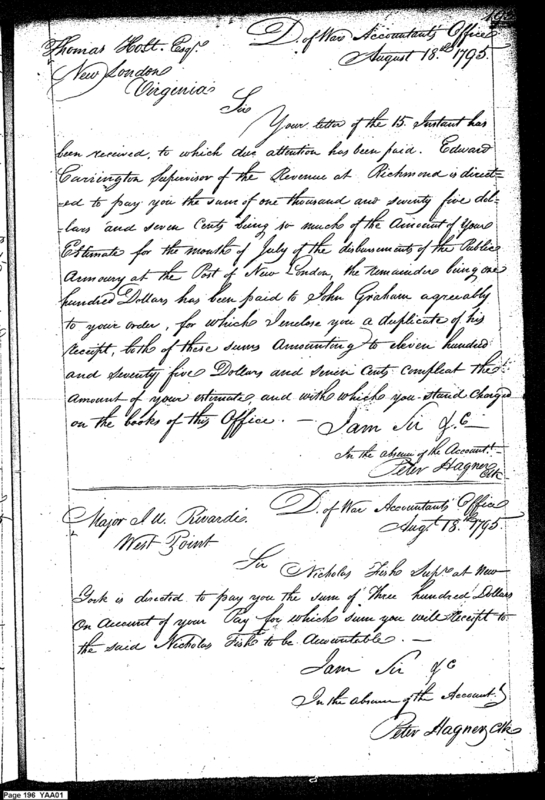 Thomas Holt. Esqr.
New London
Virginia
D. of War Accountants Office
August 18th 1795.
Sir
Your letter of the 15. Instant has
been received, to which due attention has been paid. Edward
Carrington Supervisor of the Revenue at Richmond is direct-
ed to pay you the sum of one thousand and seventy five dol-
lars and seven Cents being so much of the Amount of your
Estimate for the month of July of the disbursements of the Public
Armoury at the Post of New London, the remainder being one
hundred Dollars has been paid to John Graham agreeably
to your order, for which I enclose you a duplicate of his
receipt, both of these sums Amounting to eleven hundred
and seventy five Dollars and seven Cents compleat the
amount of your estimate, and with which you stand Charged
on the books of this Office. —
I am Sir &c
In the absence of the Accountt.
Peter Hagner Clk
D. of War Accountants Office
Augt. 18th 1795.
Major J. U. Rivardi
West Point
Sir
Nicholas Fish Supr. at New
York is directed to pay you the sum of Three hundred Dollars
On Account of your Pay for which sum you will Receipt to
the said Nicholas Fish to be Accountable. —
I am Sir &c
In the absence of the Accountt.
Peter Hagner Clk
Page 196 YAA01